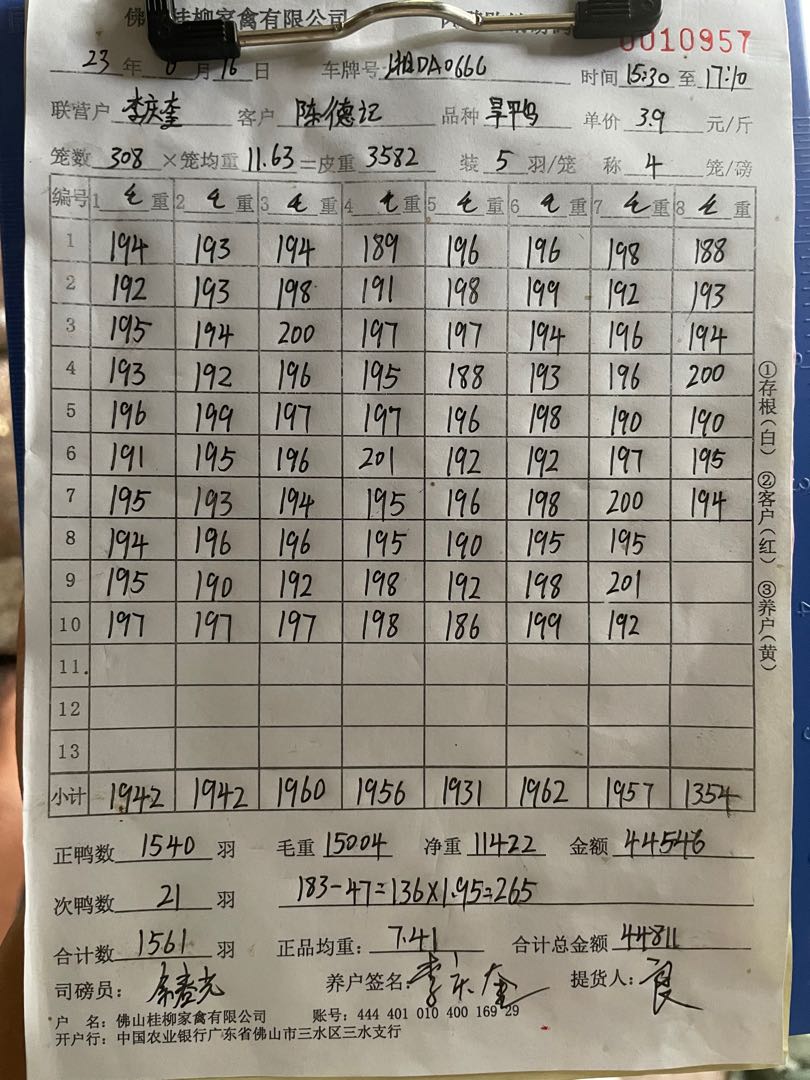 佛山桂柳家禽有限公司
0010957
23 年 6 月 16 日 车牌号 湘DA0666 时间 15:30 至 17:10
联营户 李庆奎 客户 陈德记 品种 旱鸭 单价 3.9 元/斤
笼数 308 ×笼均重 11.63 =皮重 3582 装 5 羽/笼 称 4 笼/磅
编号 1 毛 重 2 毛 重 3 毛 重 4 毛 重 5 毛 重 6 毛 重 7 毛 重 8 毛 重
1 194 193 194 189 196 196 198 188
2 192 193 198 191 198 199 192 193
3 195 194 200 197 197 194 196 194
4 193 192 196 195 188 193 196 200
5 196 199 197 197 196 198 190 190
6 191 195 196 201 192 192 197 195
7 195 193 194 195 196 198 200 194
8 194 196 196 195 190 195 195
9 195 190 192 198 192 198 201
10 197 197 197 198 186 199 192
11
12
13
小计 1942 1942 1960 1956 1931 1962 1957 1354
①存根(白) ②客户(红) ③养户(黄)
正鸭数 1540 羽 毛重 15004 净重 11422 金额 44546
次鸭数 21 羽 183-47=136×1.95=265
合计数 1561 羽 正品均重: 7.41 合计总金额 44811
司磅员: 养户签名: 李庆奎 提货人: 良
户 名: 佛山桂柳家禽有限公司 账号: 444 401 010 400 169 29
开户行: 中国农业银行广东省佛山市三水区三水支行